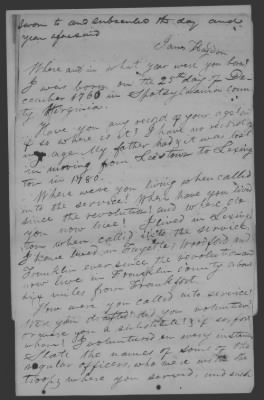 sworn to and subscribed the day and
year aforesaid
James
Where and in what year were you born?
I was born on the 25th day of De-
cember 1760 in Spotsylvania coun-
ty Virginia.
Have you any record of your age and
if so where is it? I have no record of
my age my father had it was lost
in moving from Leestown to Lexing-
ton in 1780.
Where were you living when called
into the service? Where have you lived
since the revolution? and where do
you now live? I lived in Lexing-
ton when called into the service.
I have lived in Fayette, Woodford and
Franklin ever since the revolution and
now live in Franklin County about
six miles from Frankfort.
How were you called into service?
were you drafted? did you volunteer?
or were you a substitute? & if so for
whom? I volunteered on every instance
State the names of some of the
regular officers, who were with the
troops where you served, and such